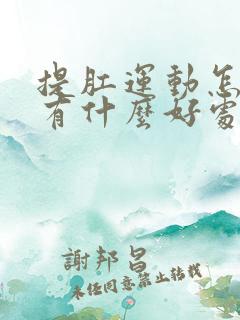 提肛運動怎
有什麼好處
謝邦昌
未經同意禁止轉載